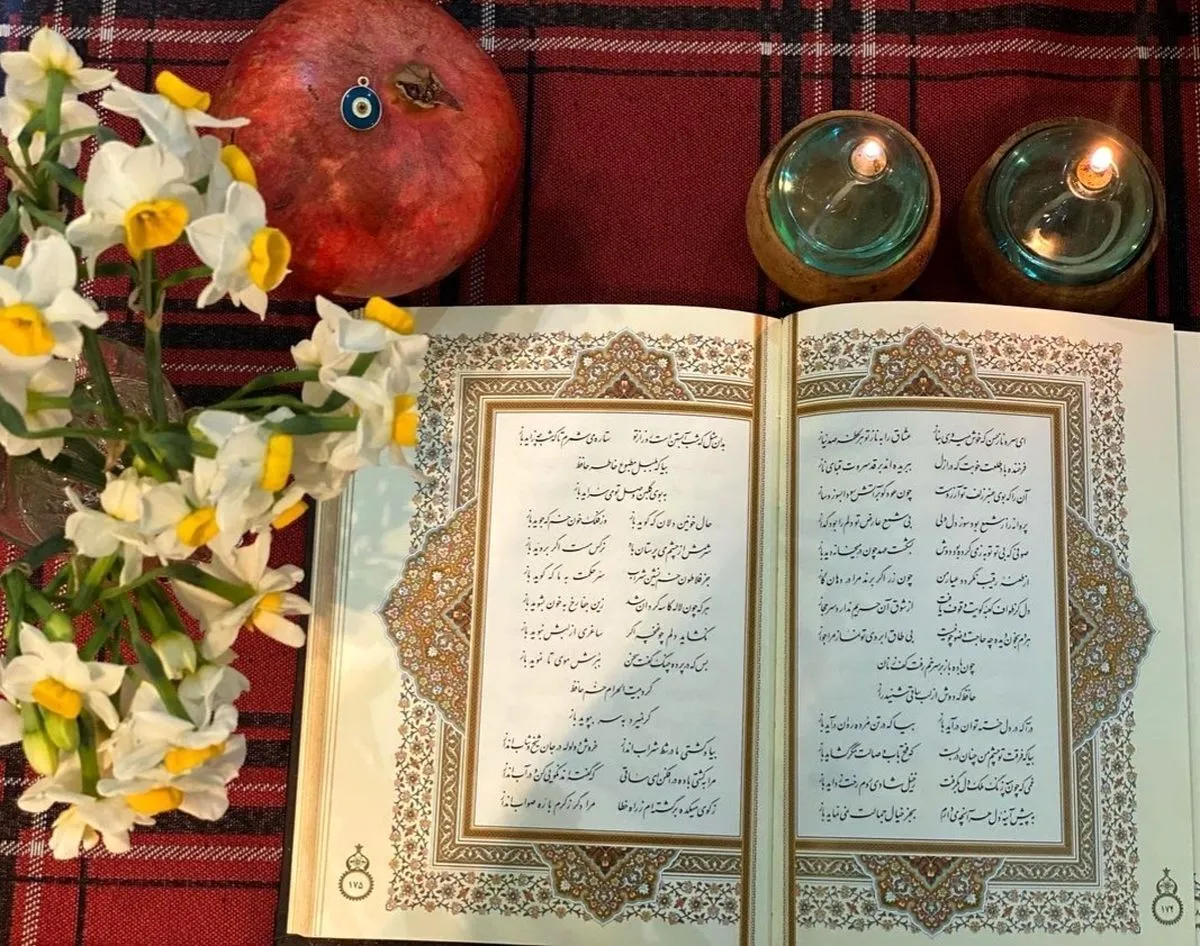 ای سرو ناز حسن که خوش می‌روی به ناز عشاق را به ناز تو هر لحظه صد نیاز
فرخنده باد طلعت خوبت که در ازل ببریده‌اند بر قد سروت قبای ناز
آن را که بوی عنبر زلف تو آرزوست چون عود گو بر آتش سودا بسوز و ساز
پروانه را ز شمع بود سوز دل ولی بی شمع عارض تو دلم را بود گداز
صوفی که بی تو توبه ز می کرده بود دوش بشکست عهد چون در میخانه دید باز
از طعنه رقیب نگردد عیار من چون زر اگر برند مرا در دهان گاز
دل کز طواف کعبه کویت وقوف یافت از شوق آن حریم ندارد سر حجاز
هر دم به خون دیده چه حاجت وضو چو نیست بی طاق ابروی تو نماز مرا جواز
چون باده باز بر سر خم رفت کف زنان
حافظ که دوش از لب ساقی شنید راز
درآ که در دل خسته توان درآید باز بیا که در تن مرده روان درآید باز
بیا که فرقت تو چشم من چنان در بست که فتح باب وصالت مگر گشاید باز
غمی که چون سپه زنگ ملک دل بگرفت ز خیل شادی روم رخت زداید باز
به پیش آینه دل هر آنچه می‌دارم بجز خیال جمالت نمی‌نماید باز
۱۷۴
بدان مثل که شب آبستن است و روز از تو ستاره می‌شمرم تا که شب چه زاید باز
بیا که بلبل مطبوع خاطر حافظ
به بوی گلبن وصل تو می‌سراید باز
حال خونین دلان که گوید باز وز فلک خون خم که جوید باز
شرمش از چشم می پرستان باد نرگس مست اگر بروید باز
جز فلاطون خم نشین شراب سر حکمت به ما که گوید باز
هر که چون لاله کاسه گردان شد زین جفا رخ به خون بشوید باز
نگشاید دلم چو غنچه اگر ساغری از لبش نبوید باز
بس که در پرده چنگ گفت سخن ببرش موی تا نموید باز
گرد بیت الحرام خم حافظ
گر نمیرد به سر بپوید باز
بیا و کشتی ما در شط شراب انداز خروش و ولوله در جان شیخ و شاب انداز
مرا به کشتی باده درافکن ای ساقی که گفته‌اند نکویی کن و در آب انداز
ز کوی میکده برگشته‌ام ز راه خطا مرا دگر ز کرم با ره صواب انداز
۱۷۵